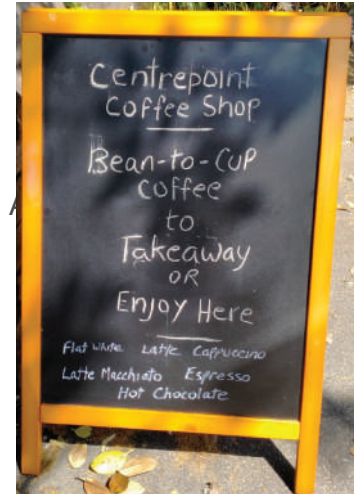 Centrepoint
Coffee Shop
Bean-to-Cup
Coffee
to
Takeaway
OR
Enjoy Here
Flat White Latte Cappuccino
Latte Macchiato Espresso
Hot Chocolate